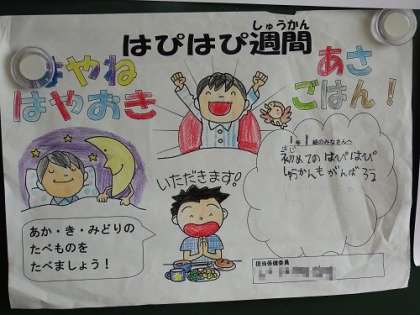 しゅうかん
はぴはぴ週間
はやね
はやおき
あさ
ごはん！
いただきます！
1年1組のみなさんへ
はじ
初めてのはぴはぴ
しゅうかんもがんばろう
あか・き・みどりの
たべものを
たべましょう！
担当保健委員